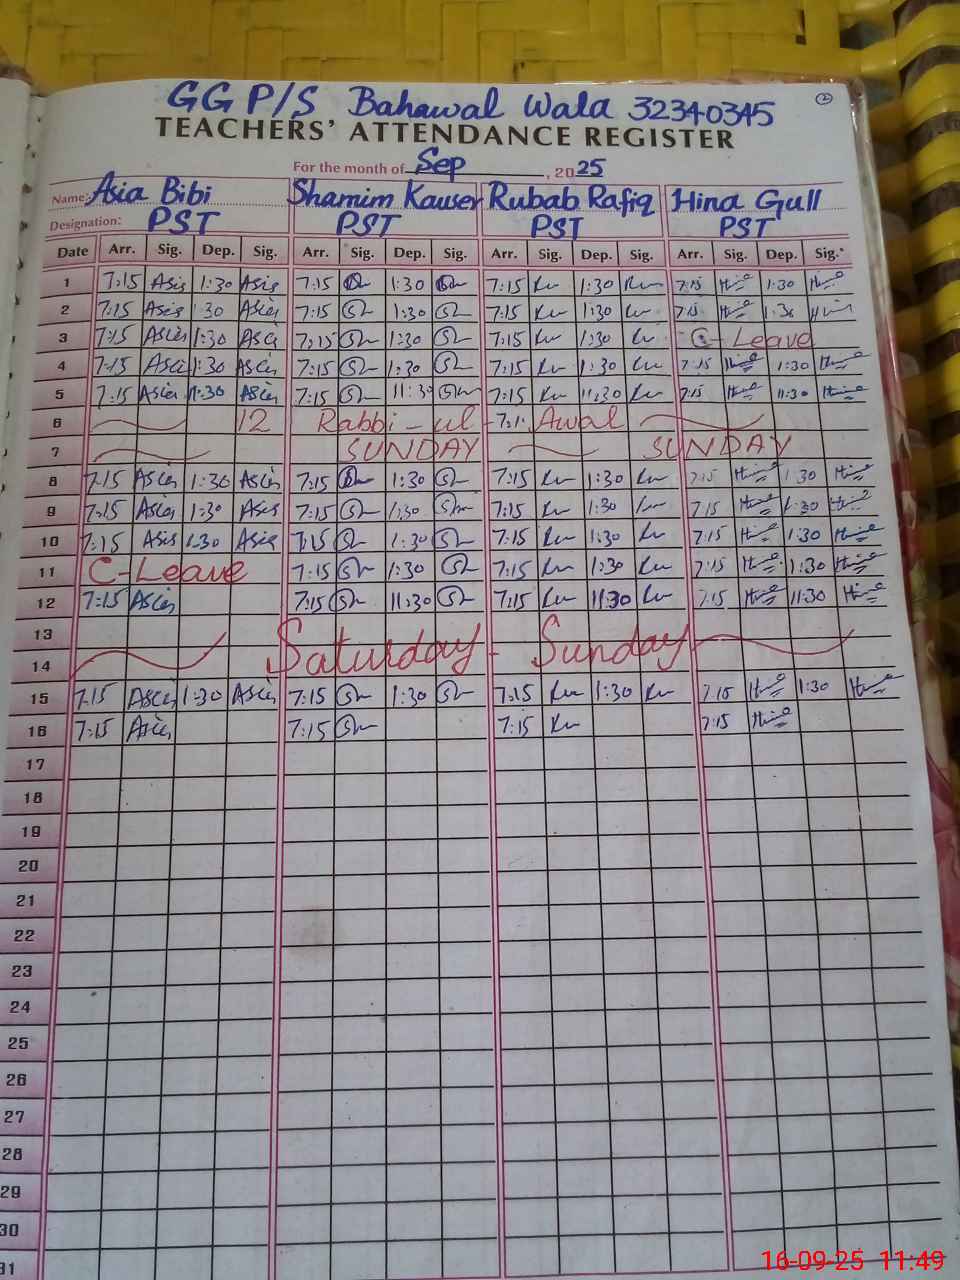 GGP/S Bahawal Wala 32340345
2
TEACHERS' ATTENDANCE REGISTER
For the month of Sep, 2025
Name: Asia Bibi Shamim Kauser Rubab Rafiq Hina Gull
Designation: PST PST PST PST
Date Arr. Sig. Dep. Sig. Arr. Sig. Dep. Sig. Arr. Sig. Dep. Sig. Arr. Sig. Dep. Sig.
1 7:15 Asia 1:30 Asia 7:15 1:30 7:15 1:30 7:15 1:30
2 7:15 Asia 1 30 Asia 7:15 Sh 1:30 Sh 7:15 1:30 7:15 1:30
3 7:15 Asia 1:30 Asia 7:15 Sh 1:30 Sh 7:15 1:30 C- Leave
4 7:15 Asia 1:30 Asia 7:15 Sh 1:30 Sh 7:15 1:30 7:15 1:30
5 7:15 Asia 11:30 Asia 7:15 Sh 11:30 Sh 7:15 11:30 7:15 11:30
6 12 Rabbi-ul-Awal
7 SUNDAY SUNDAY
8 7:15 Asia 1:30 Asia 7:15 1:30 Sh 7:15 1:30 7:15 1:30
9 7:15 Asia 1:30 Asia 7:15 Sh 1:30 Sh 7:15 1:30 7:15 1:30
10 7:15 Asia 1:30 Asia 7:15 Sh 1:30 Sh 7:15 1:30 7:15 1:30
11 C-Leave 7:15 Sh 1:30 Sh 7:15 1:30 7:15 1:30
12 7:15 Asia 7:15 Sh 11:30 Sh 7:15 11:30 7:15 11:30
13 Saturday - Sunday
14
15 7:15 Asia 1:30 Asia 7:15 Sh 1:30 Sh 7:15 1:30 7:15 1:30
16 7:15 Asia 7:15 Sh 7:15 7:15
17
18
19
20
21
22
23
24
25
26
27
28
29
30
31
16-09-25 11:49